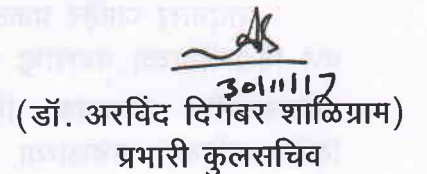 30/11/17
(डॉ. अरविंद दिगंबर शाळिग्राम)
प्रभारी कुलसचिव